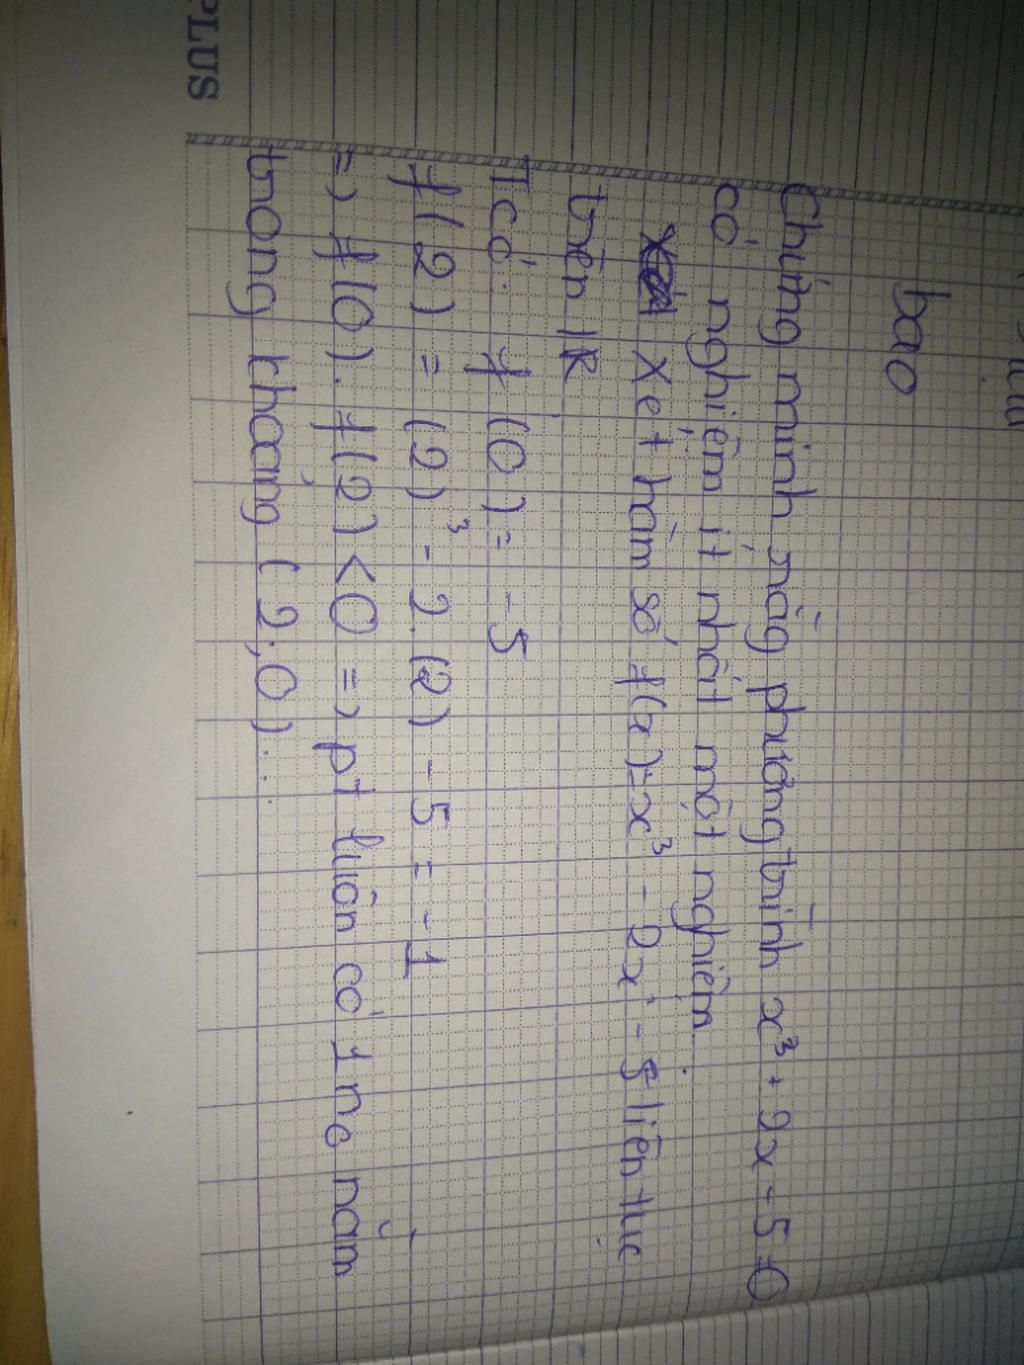 PLUS
bao
Chứng minh rằng phương trình x³ + 2x - 5 = 0
có nghiệm ít nhất một nghiệm.
Xét hàm số f(x) = x³ - 2x - 5 liên tục
trên ℝ
Tcó: f(0) = -5
f(2) = (2)³ - 2.(2) - 5 = -1
=> f(0).f(2) < 0 => pt luôn có 1 no nằm
trong khoảng (2;0)...